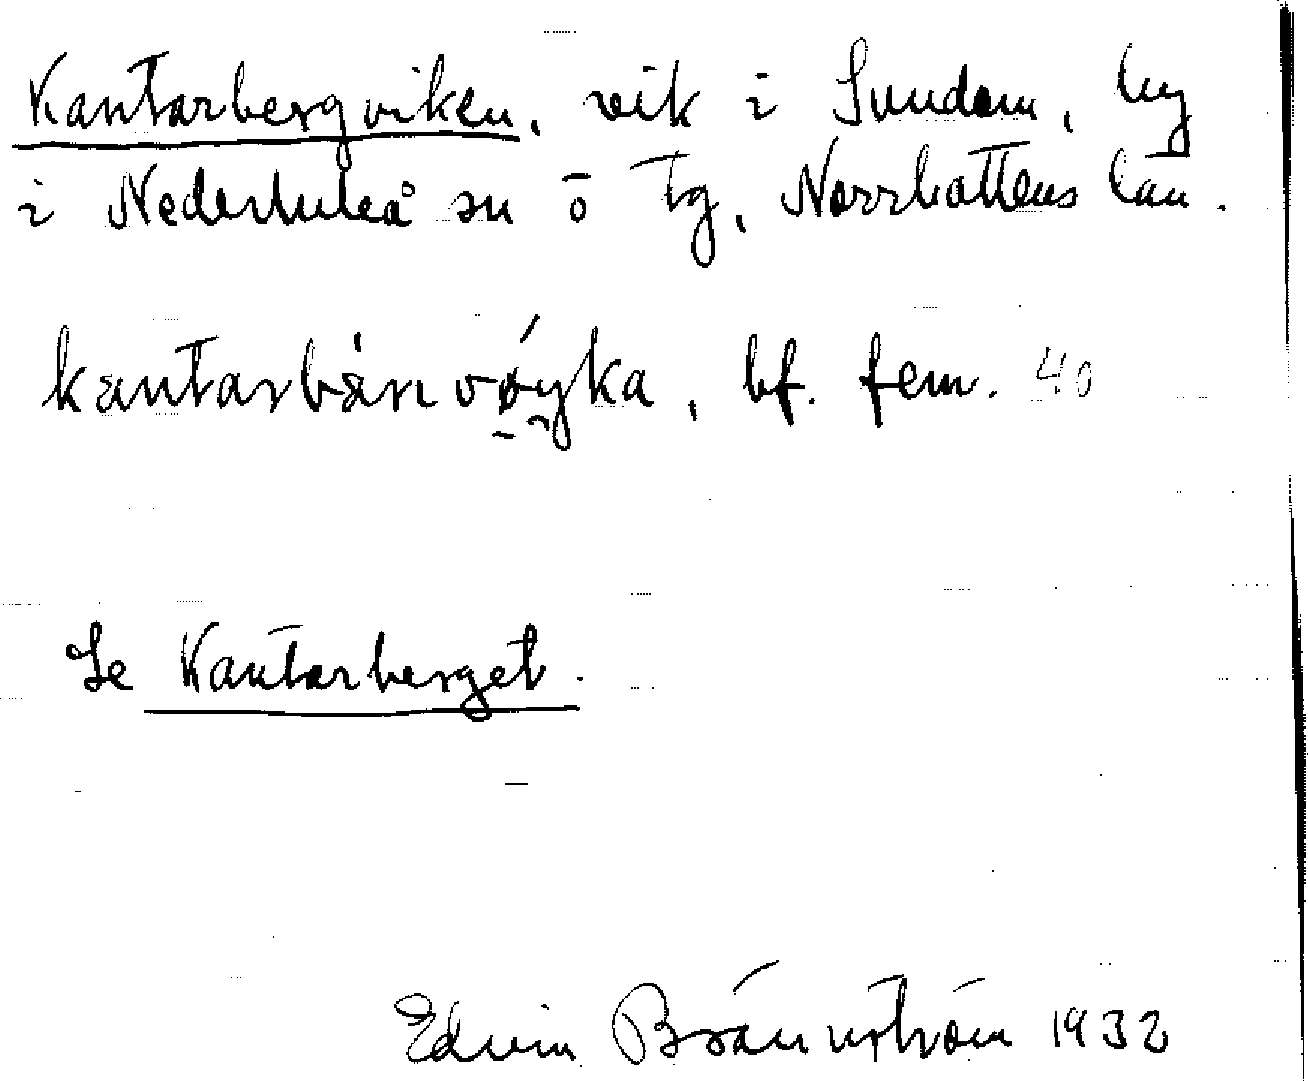 Kantarbergviken, vik i Sundom, by
i Nederluleå sn ö tg, Norrbottens län.
kantarbàn vóyka, bf. fem. 40
Se Kantarberget.
Edvin Brännström 1932